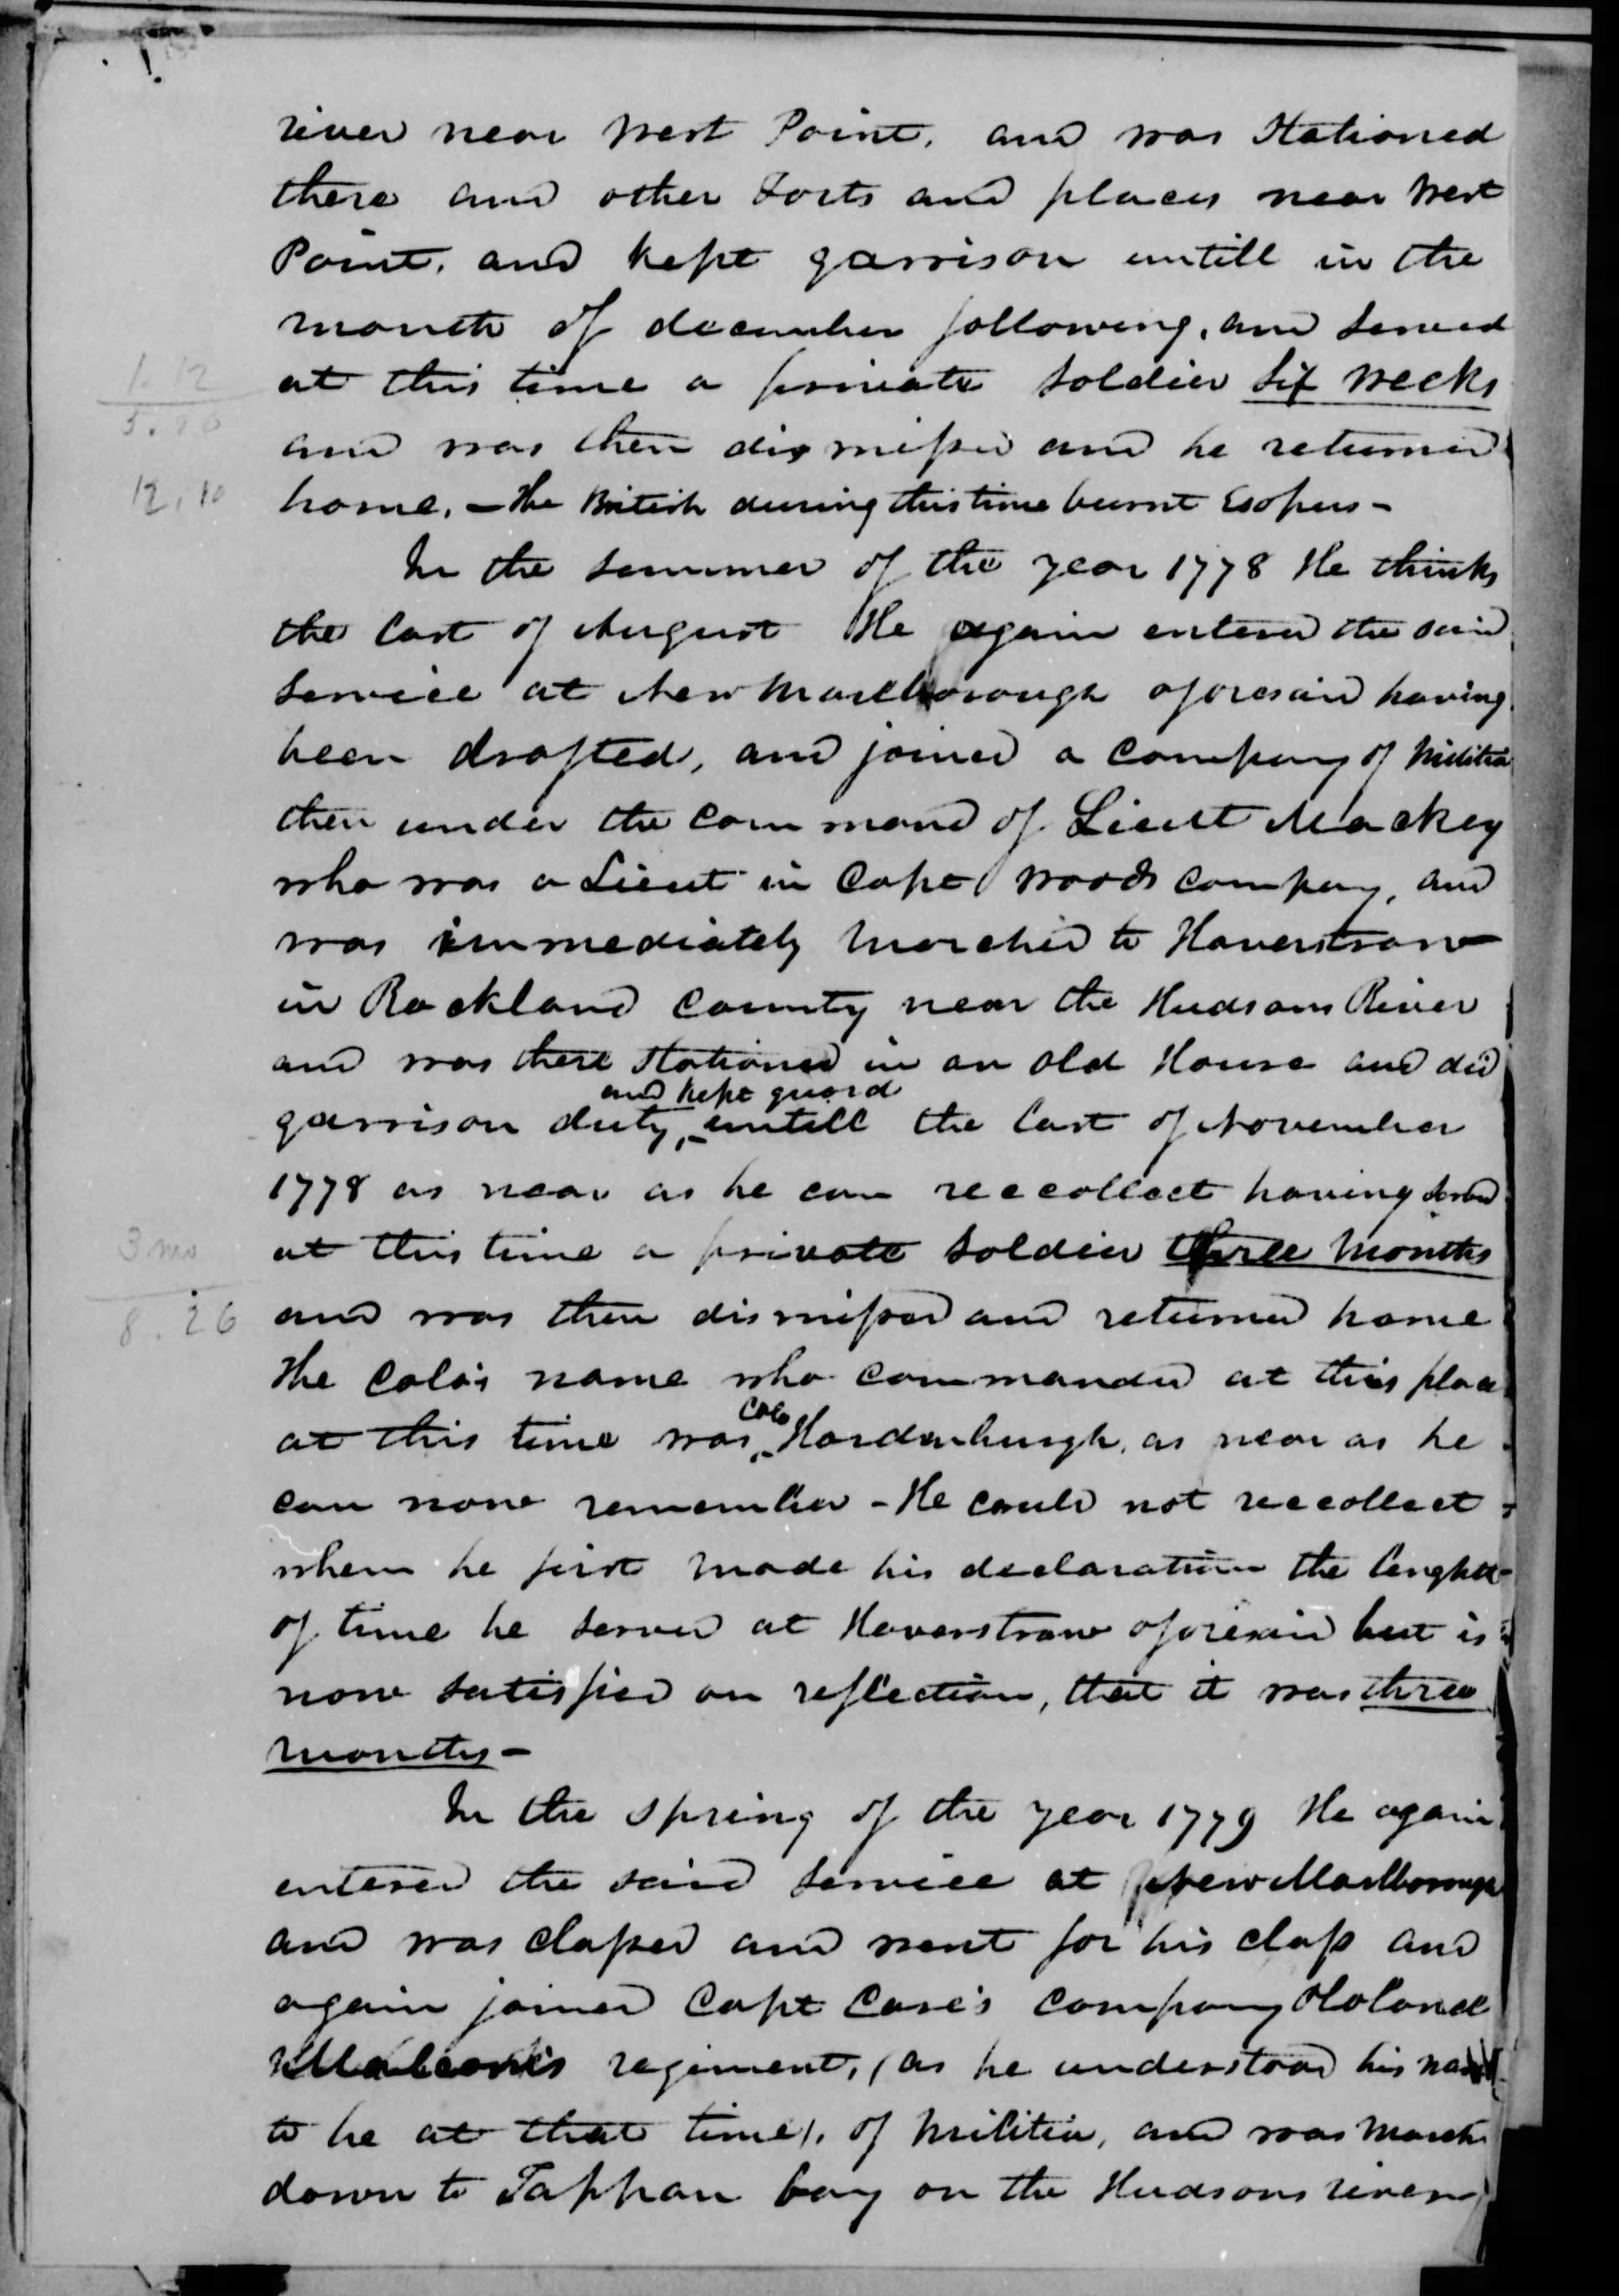 river near West Point, and was Stationed
there and other Forts and places near West
Point, and kept garrison untill in the
month of december following, and served
1. 12
at this time a private soldier six weeks
and was then dismissed and he returned
12, 10
home. – The British during this time burnt Esopus –
In the summer of the year 1778 He thinks
the last of August He again entered the said
service at New Marlborough aforesaid having
been drafted, and joined a company of Militia
then under the command of Lieut Mackey
who was a Lieut in Capt Woods company, and
was immediately marched to Haverstraw
in Rockland County near the Hudsons River
and was there Stationed in an old House and did
and kept guard
garrison duty, untill the last of November
1778 as near as he can reecollect having served
3 mo
at this time a private soldier three months
8. 26
and was then dismissed and returned home
The Colo's name who commanded at this place
Colo
at this time was Hardenburgh, as near as he
can now remember – He could not reecollect
when he first made his declaration the lenghth
of time he served at Haverstraw aforesaid but is
now satisfied on reflection, that it was three
months –
In the spring of the year 1779 He again
entered the said service at New Marlborough
and was classed and went for his class and
again joined Capt Case's company Colonel
Malcom's regiment, (as he understood his name
to be at that time). of Militia, and was March
down to Tappan bay on the Hudsons river